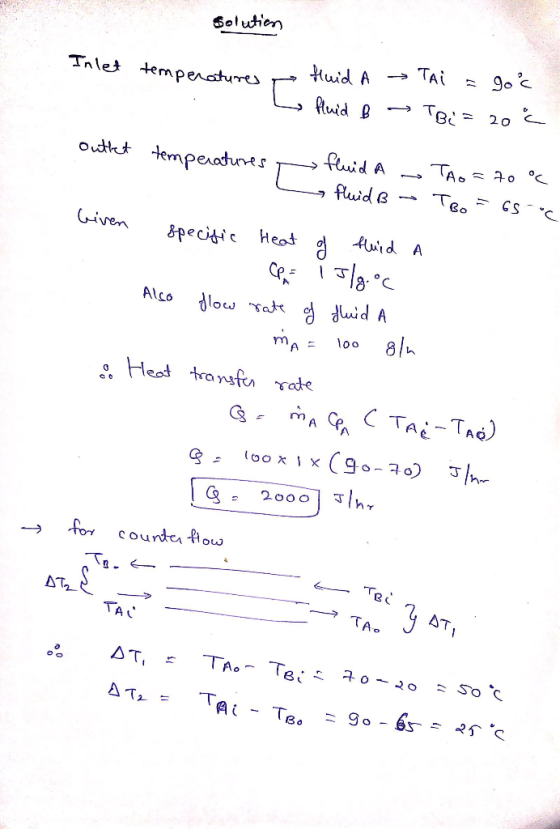 Solution
Inlet temperatures → fluid A → TAi = 90°C
→ fluid B → TBi = 20 °C
outlet temperatures → fluid A → TAo = 70 °C
→ fluid B → TBo = 65 °C
Given specific Heat of fluid A
CpA = 1 J/g.°C
Also flow rate of fluid A
ṁA = 100 g/h
∴ Heat transfer rate
Q = ṁA CpA (TAi - TAo)
Q = 100 x 1 x (90-70) J/hr
Q = 2000 J/hr
→ for counter flow
TBo ←
← TBi
ΔT2 {
TAi →
→ TAo } ΔT1
∴ ΔT1 = TAo - TBi = 70-20 = 50°C
ΔT2 = TAi - TBo = 90 - 65 = 25 °C